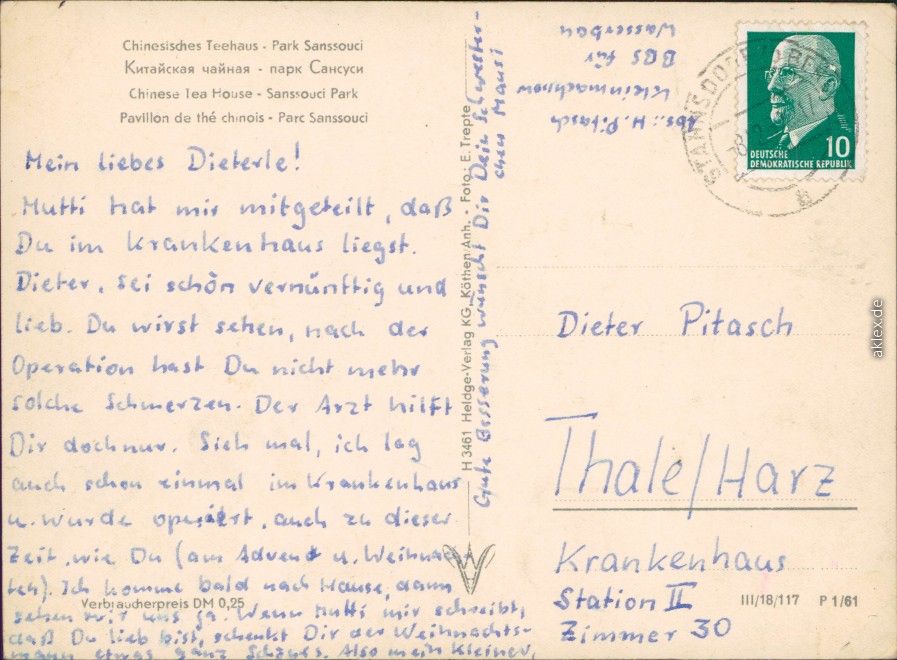 Chinesisches Teehaus - Park Sanssouci
Китайская чайная - парк Сансуси
Chinese Tea House - Sanssouci Park
Pavillon de thé chinois - Parc Sanssouci
Mein liebes Dieterle!
Mutti hat mir mitgeteilt, daß
Du im Krankenhaus liegst.
Dieter, sei schön vernünftig und
lieb. Du wirst sehen, nach der
Operation hast Du nicht mehr
solche Schmerzen. Der Arzt hilft
Dir doch nur. Sieh mal, ich lag
auch schon einmal im Krankenhaus
u. wurde operiert, auch zu dieser
Zeit, wie Du (am Advent u. Weihnach-
ten). Ich komme bald nach Hause, dann
sehen wir uns ja. Wenn Mutti mir schreibt,
daß Du lieb bist, schenkt Dir der Weihnachts-
mann etwas ganz Schönes. Also mein Kleiner,
Verbraucherpreis DM 0,25
Gute Besserung wünscht Dir Dein Schwester-
chen Mausi
H 3461 Heldge-Verlag KG, Köthen/Anh. - Foto: E. Trepte
Abs.: H. Pitasch
Kleinmachnow
BBS für
Wasserbau
STAHNSDORF
DEUTSCHE
DEMOKRATISCHE REPUBLIK
10
Dieter Pitasch
Thale/Harz
Krankenhaus
Station II
Zimmer 30
III/18/117 P 1/61
aklex.de